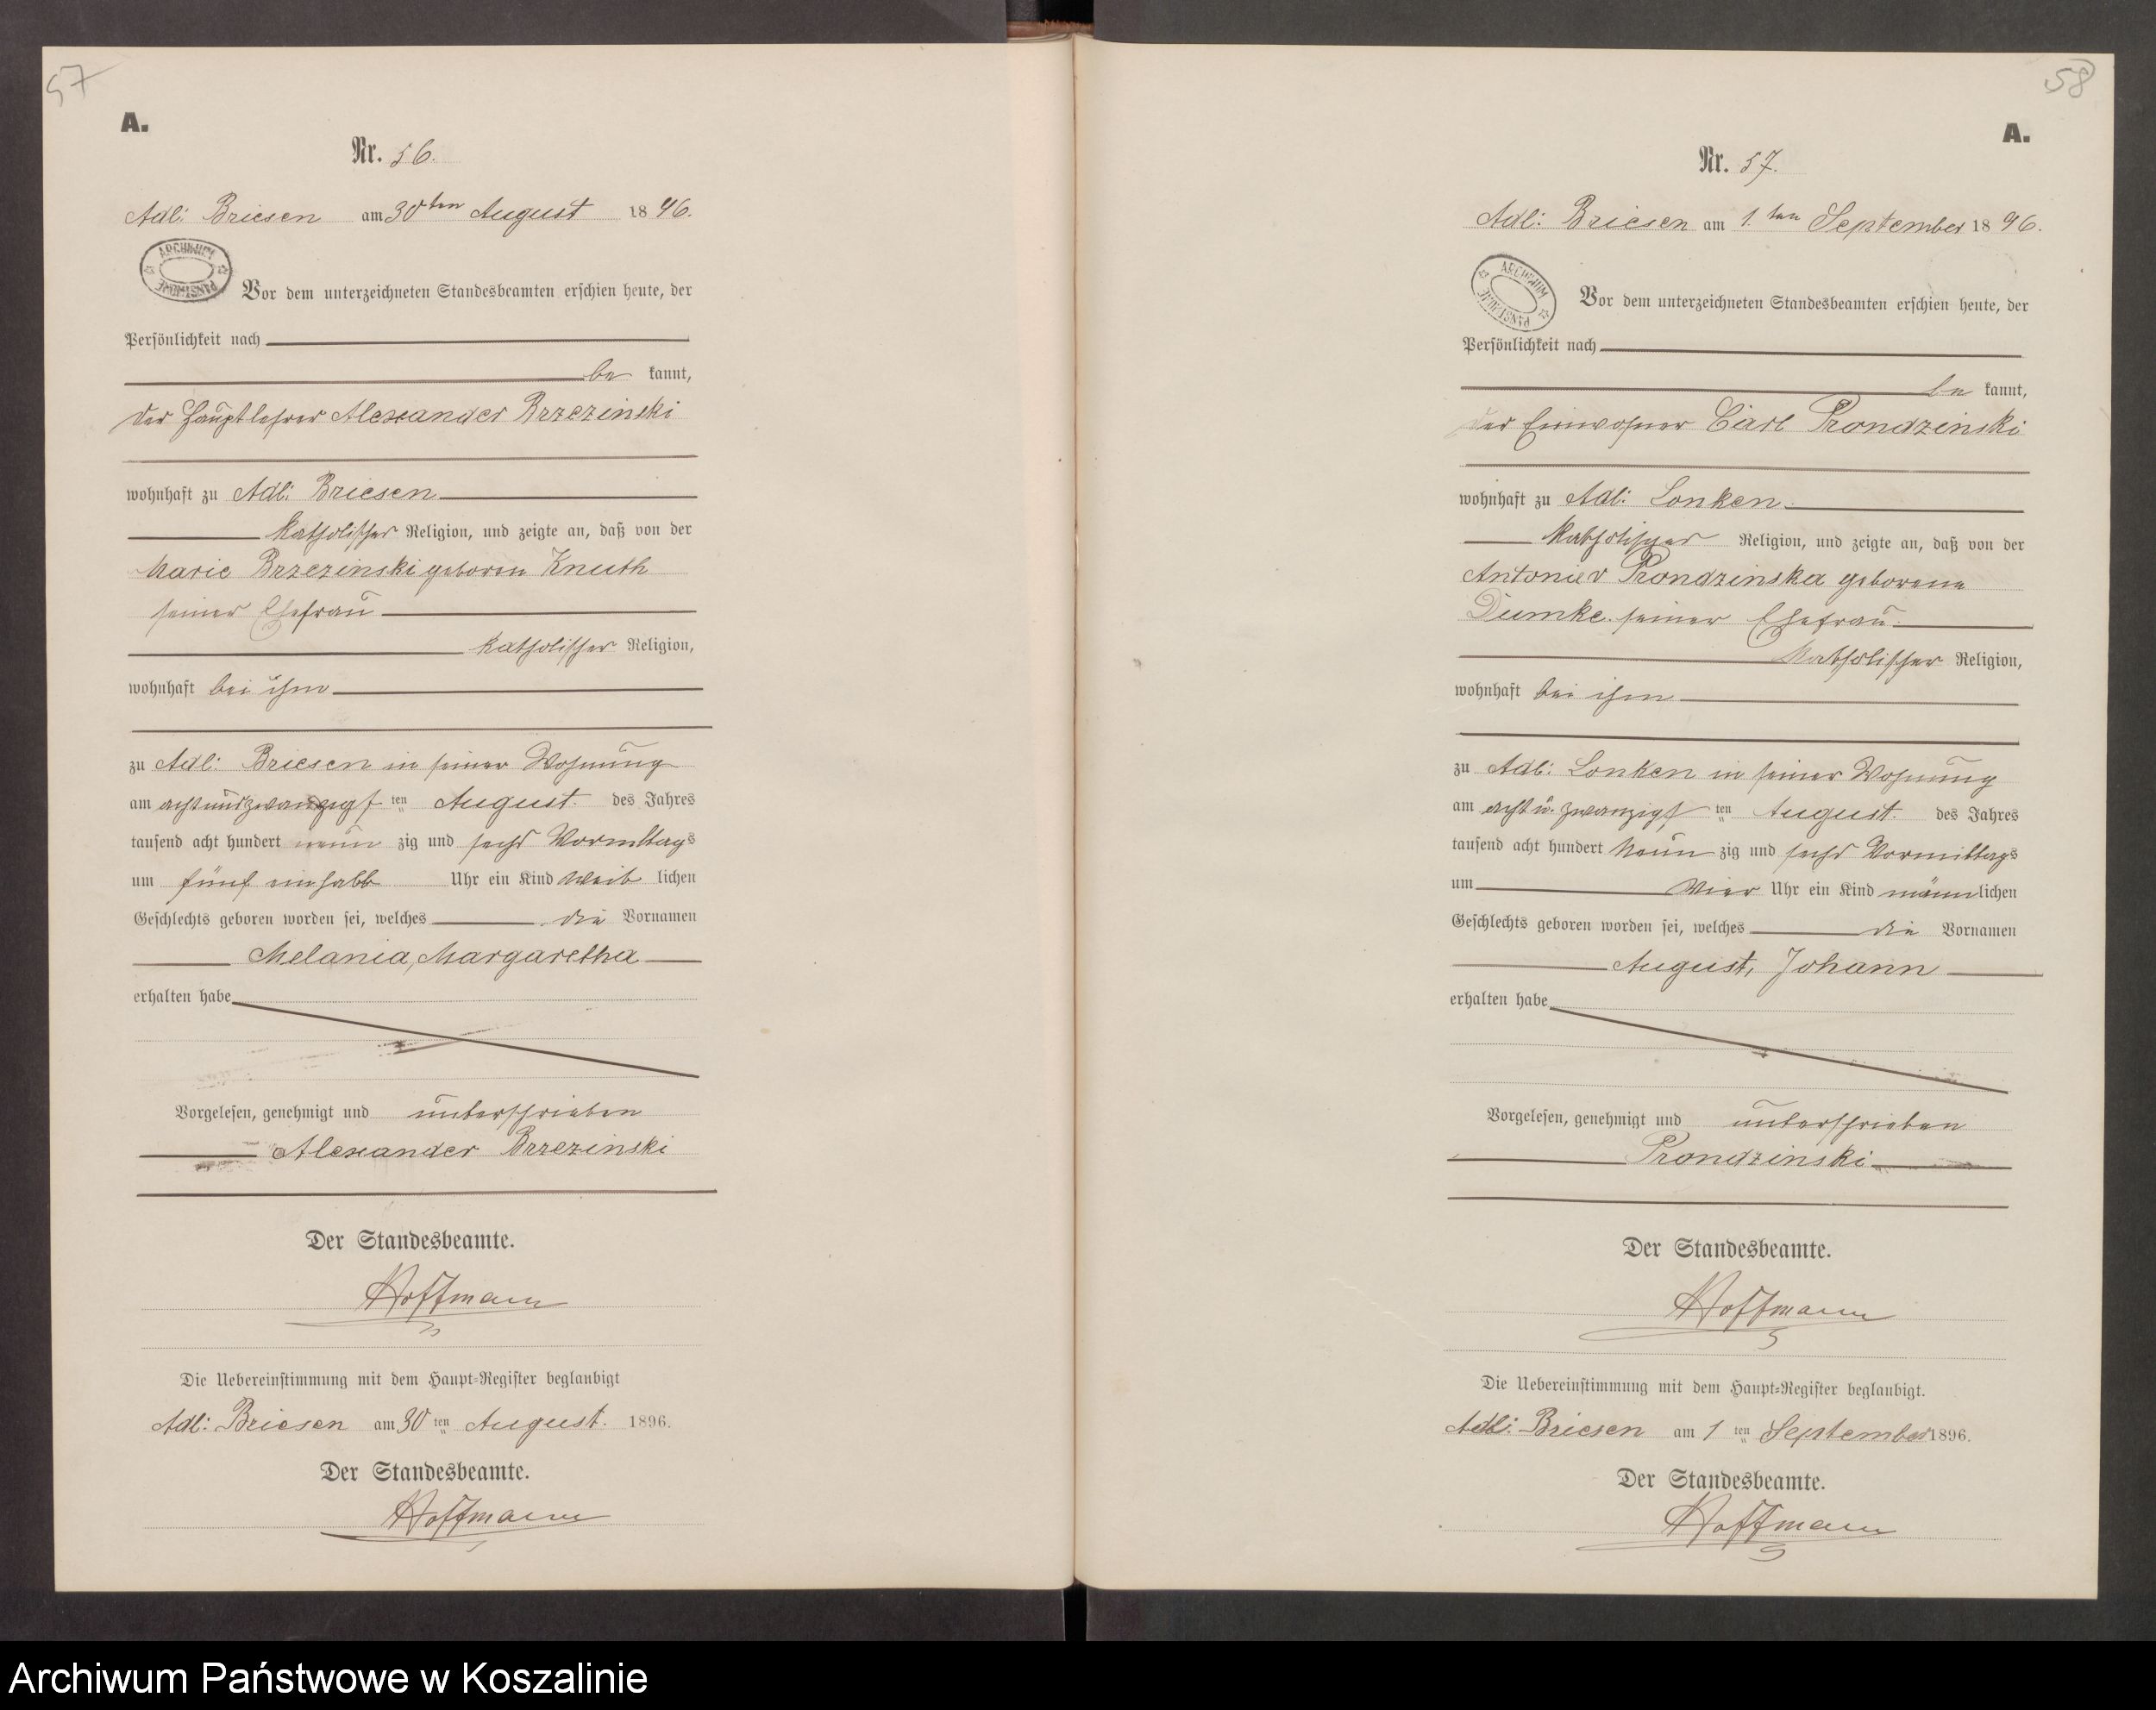 57
A.
Nr. 56.
Adl: Briesen am 30ten August 1896.
ARCHIWUM PAŃSTWOWE
Vor dem unterzeichneten Standesbeamten erschien heute, der
Persönlichkeit nach
be kannt,
der Hauptlehrer Alexander Brzezinski
wohnhaft zu Adl: Briesen
katholischer Religion, und zeigte an, daß von der
Marie Brzezinski geboren Knuth
seiner Ehefrau
katholischer Religion,
wohnhaft bei ihm
zu Adl: Briesen in seiner Wohnung
am achtundzwanzigsten August. des Jahres
tausend acht hundert neun zig und sechs Vormittags
um fünf einhalb Uhr ein Kind weib lichen
Geschlechts geboren worden sei, welches die Vornamen
Melania, Margaretha
erhalten habe
Vorgelesen, genehmigt und unterschrieben
Alexander Brzezinski
Der Standesbeamte.
Hoffmann
Die Uebereinstimmung mit dem Haupt-Register beglaubigt
Adl: Briesen am 30 ten August. 1896.
Der Standesbeamte.
Hoffmann
58
A.
Nr. 57.
Adl: Briesen am 1. ten September 1896.
ARCHIWUM PAŃSTWOWE
Vor dem unterzeichneten Standesbeamten erschien heute, der
Persönlichkeit nach
be kannt,
der Einwohner Carl Prondzinski
wohnhaft zu Adl: Lonken.
katholischer Religion, und zeigte an, daß von der
Prondzinska geborene
Dumke. seiner Ehefrau.
katholischer Religion,
wohnhaft bei ihm
zu Adl: Lonken in seiner Wohnung
am acht u. zwanzigsten August. des Jahres
tausend acht hundert Neun zig und sechs Vormittags
um Vier Uhr ein Kind männlichen
Geschlechts geboren worden sei, welches die Vornamen
August, Johann
erhalten habe
Vorgelesen, genehmigt und unterschrieben
Prondzinski
Der Standesbeamte.
Hoffmann
Die Uebereinstimmung mit dem Haupt-Register beglaubigt.
Adl: Briesen am 1 ten September 1896.
Der Standesbeamte.
Hoffmann
Archiwum Państwowe w Koszalinie